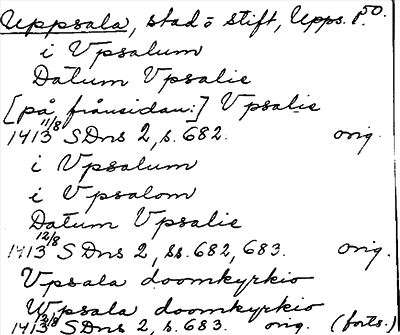 Uppsala, stad o stift, Upps. l. 50.
i Vpsalum
Datum Vpsalie
[på frånsidan:] Vpsalie
1413 11/8 SDns 2, s. 682. orig.
i Vpsalum
i Vpsalom
Datum Vpsalie
1413 12/8 SDns 2, ss. 682, 683. orig.
Vpsala doomkyrkio
Wpsala doomkyrkio
1413 12/8 SDns 2, s. 683. orig. (forts.)